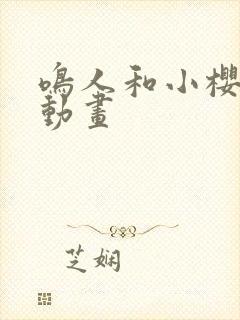 鳴人和小櫻
動畫
芝嫻